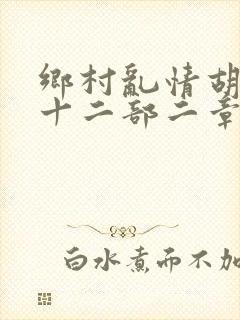 鄉村亂情胡
十二部二章
白水煮而不加